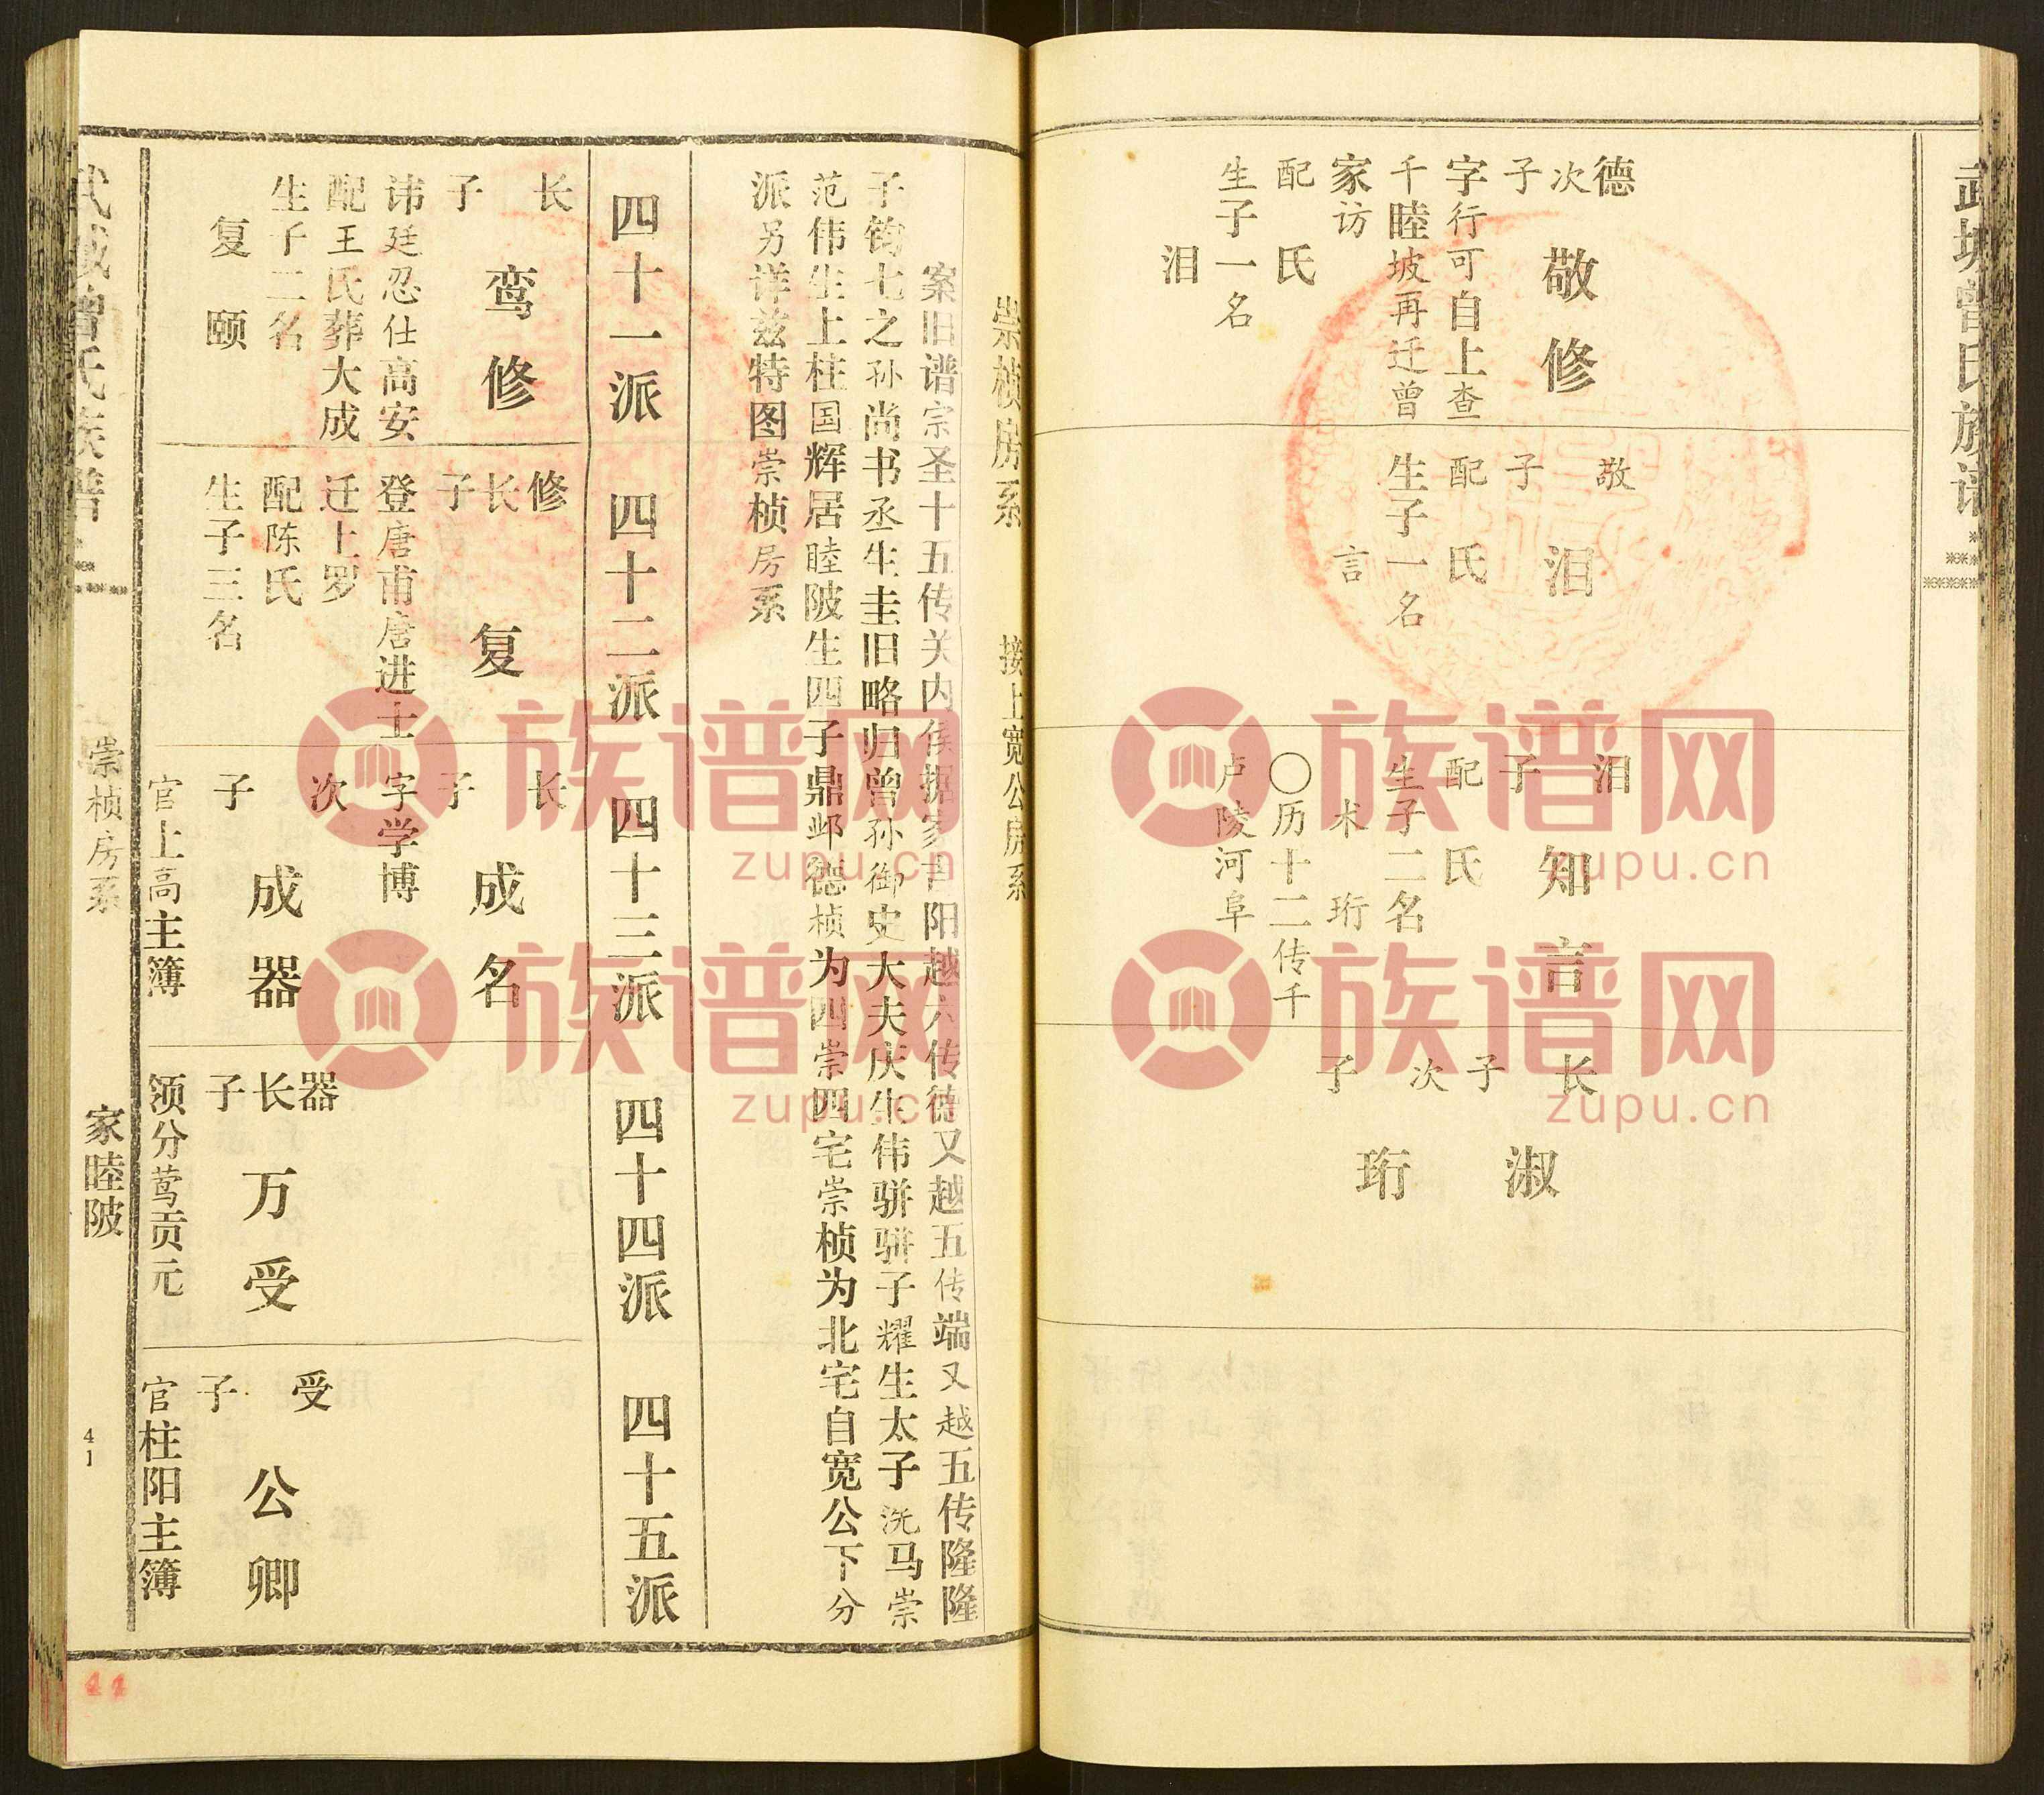 武城曾氏族谱
德次子
敬修
字行可自上查
千睦坡再迁曾
家访
配氏
生子一名
泪
敬子
泪
配氏
生子一名
言
泪子
知言
配氏
生子二名
术珩
〇历十二传千
卢陵河阜
长子
淑
次子
珩
崇桢房系
接上宽公房系
案旧谱宗圣十五传关内侯据家吉阳越六传德又越五传端又越五传隆隆
子钧七之孙尚书丞生圭旧略归曾孙御史大夫庆生伟骈骈子耀生太子洗马崇
范伟生上柱国辉居睦陂生四子鼎邺德桢为四崇四宅崇桢为北宅自宽公下分
派另详兹特图崇桢房系
四十一派
四十二派
四十三派
四十四派
四十五派
长子
鸾修
讳廷忍仕高安
配王氏葬大成
生子二名
复颐
修长子
复
登唐甫唐进士
迁上罗
配陈氏
生子三名
长子
成名
字学博
次子
成器
官上高主簿
器长子
万受
领分莺贡元
受子
公卿
官柱阳主簿
武城曾氏族谱
崇桢房系
家睦陂
41
44
族谱网
zupu.cn
族谱网
zupu.cn
族谱网
zupu.cn
族谱网
zupu.cn